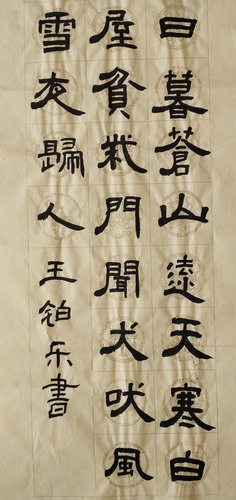 日暮蒼山遠天寒白
屋貧柴門聞犬吠風
雪夜歸人王铂乐書